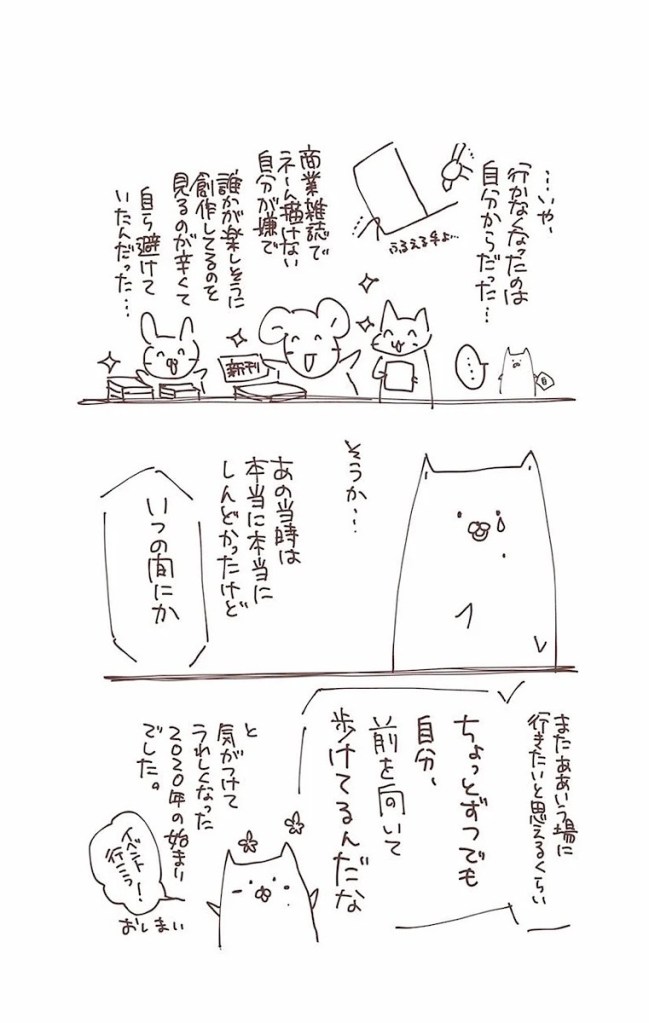 …いや、
行かなくなったのは
自分からだった…
ふるえる手よ…
商業雑誌で
ネーム描けない
自分が嫌で
誰かが楽しそうに
創作してるのを
見るのが辛くて
自ら避けて
いたんだった…
…
新刊
そうか…
あの当時は
本当に本当に
しんどかったけど
いつの間にか
またああいう場に
行きたいと思えるくらい
ちょっとずつでも
自分、
前を向いて
歩けてるんだな
と
気がつけて
うれしくなった
2020年の始まり
でした。
イベント
行こっ!
おしまい